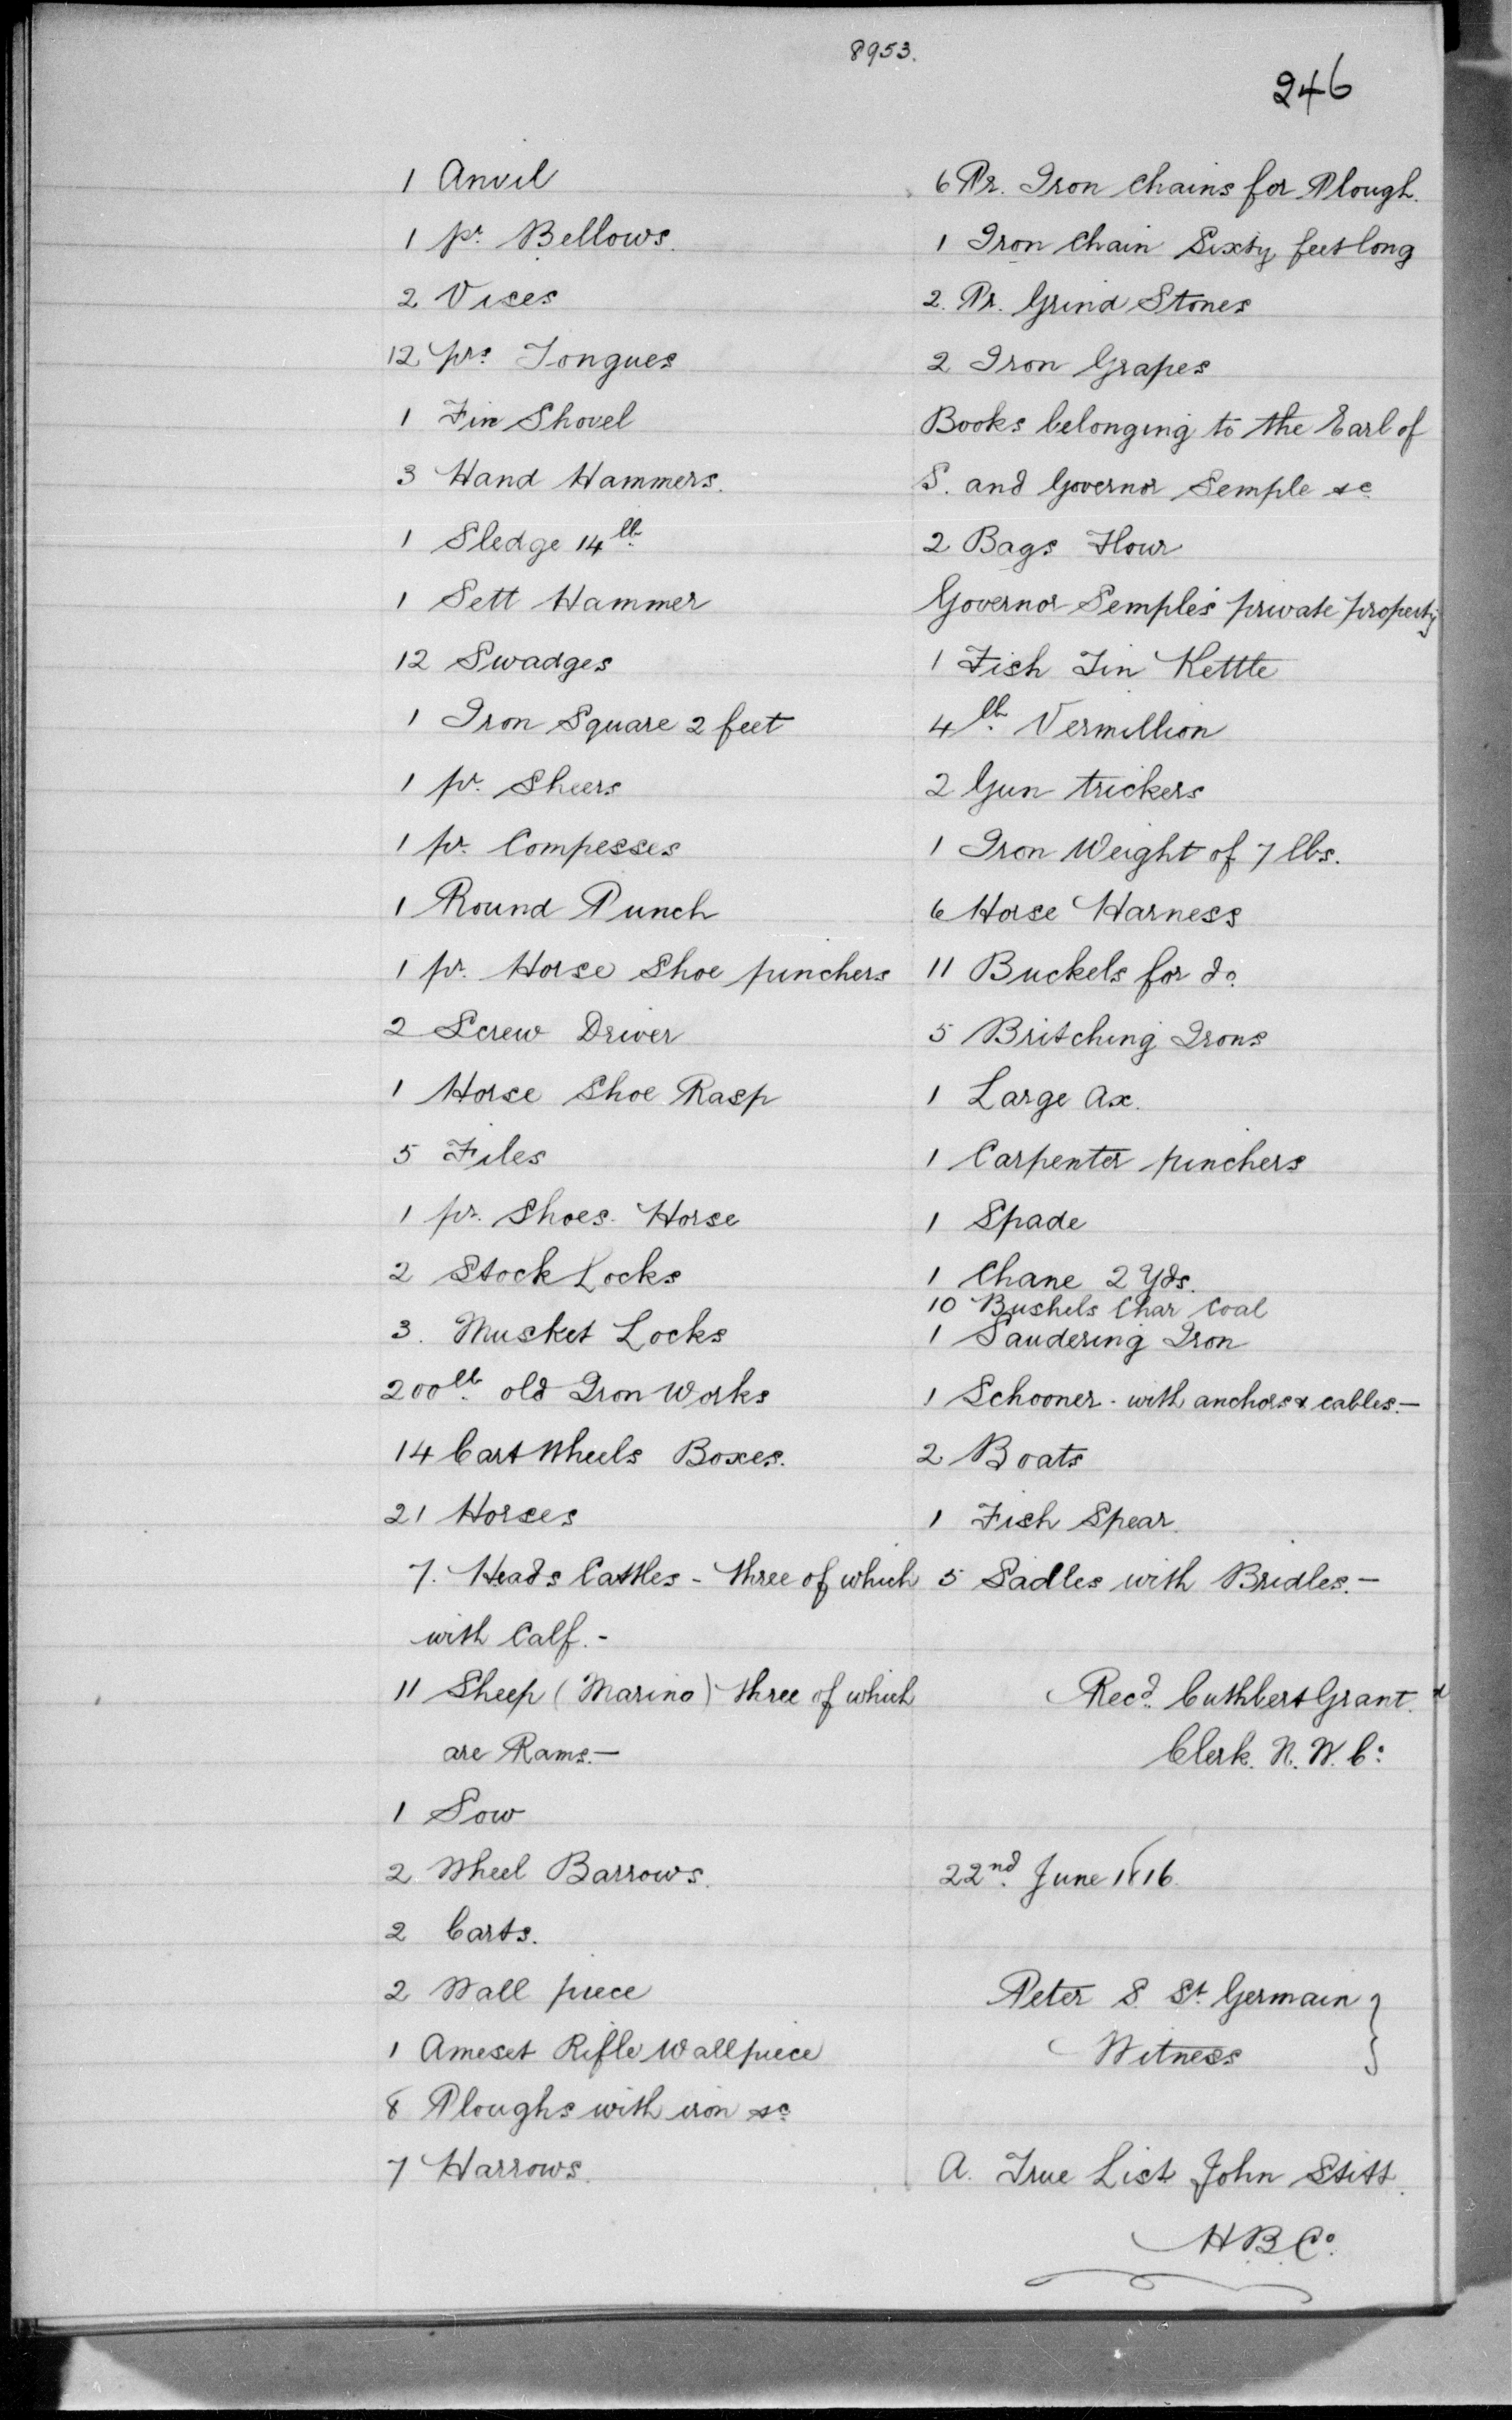 8953.
246
1 Anvil
1 pr. Bellows.
2 Vises
12 prs. Tongues
1 Fire Shovel
3 Hand Hammers.
1 Sledge 14 lb.
1 Sett Hammer
12 Swadges
1 Iron Square 2 feet
1 pr. Sheers
1 pr. Compesses
1 Round Punch
1 pr. Horse Shoe pinchers
2 Screw Driver
1 Horse Shoe Rasp
5 Files
1 pr. Shoes. Horse
2 Stock Locks
3. Musket Locks
200 lb. old Iron Works
14 Cart Wheels Boxes.
21 Horses
7. Heads Cattles - three of which
with Calf. -
11 Sheep (Marino) three of which
are Rams. —
1 Sow
2 Wheel Barrows.
2 Carts.
2 Wall piece
1 Ameset Rifle Wall piece
8 Ploughs with iron &c
7 Harrows.
6 Pr. Iron Chains for Plough.
1 Iron Chain Sixty feet long
2. Pr. Grind Stones
2 Iron Grapes
Books belonging to the Earl of
S. and Governor Semple &c
2 Bags Flour
Governor Semple's private property
1 Fish Tin Kettle
4 lb. Vermillion
2 Gun trickers
1 Iron Weight of 7 lbs.
6 Horse Harness
11 Buckels for do.
5 Britching Irons
1 Large Ax.
1 Carpenter pinchers
1 Spade
1 Chane 2 Yds.
10 Bushels Char Coal
1 Saudering Iron
1 Schooner. with anchors & cables. —
2 Boats
1 Fish Spear.
5 Sadles with Bridles. —
Recd. Cuthbert Grant.
Clerk. N. W. Co.
22nd. June 1816.
Peter S. St. Germain }
Witness
A. True List John Stitt.
H.B.Co.